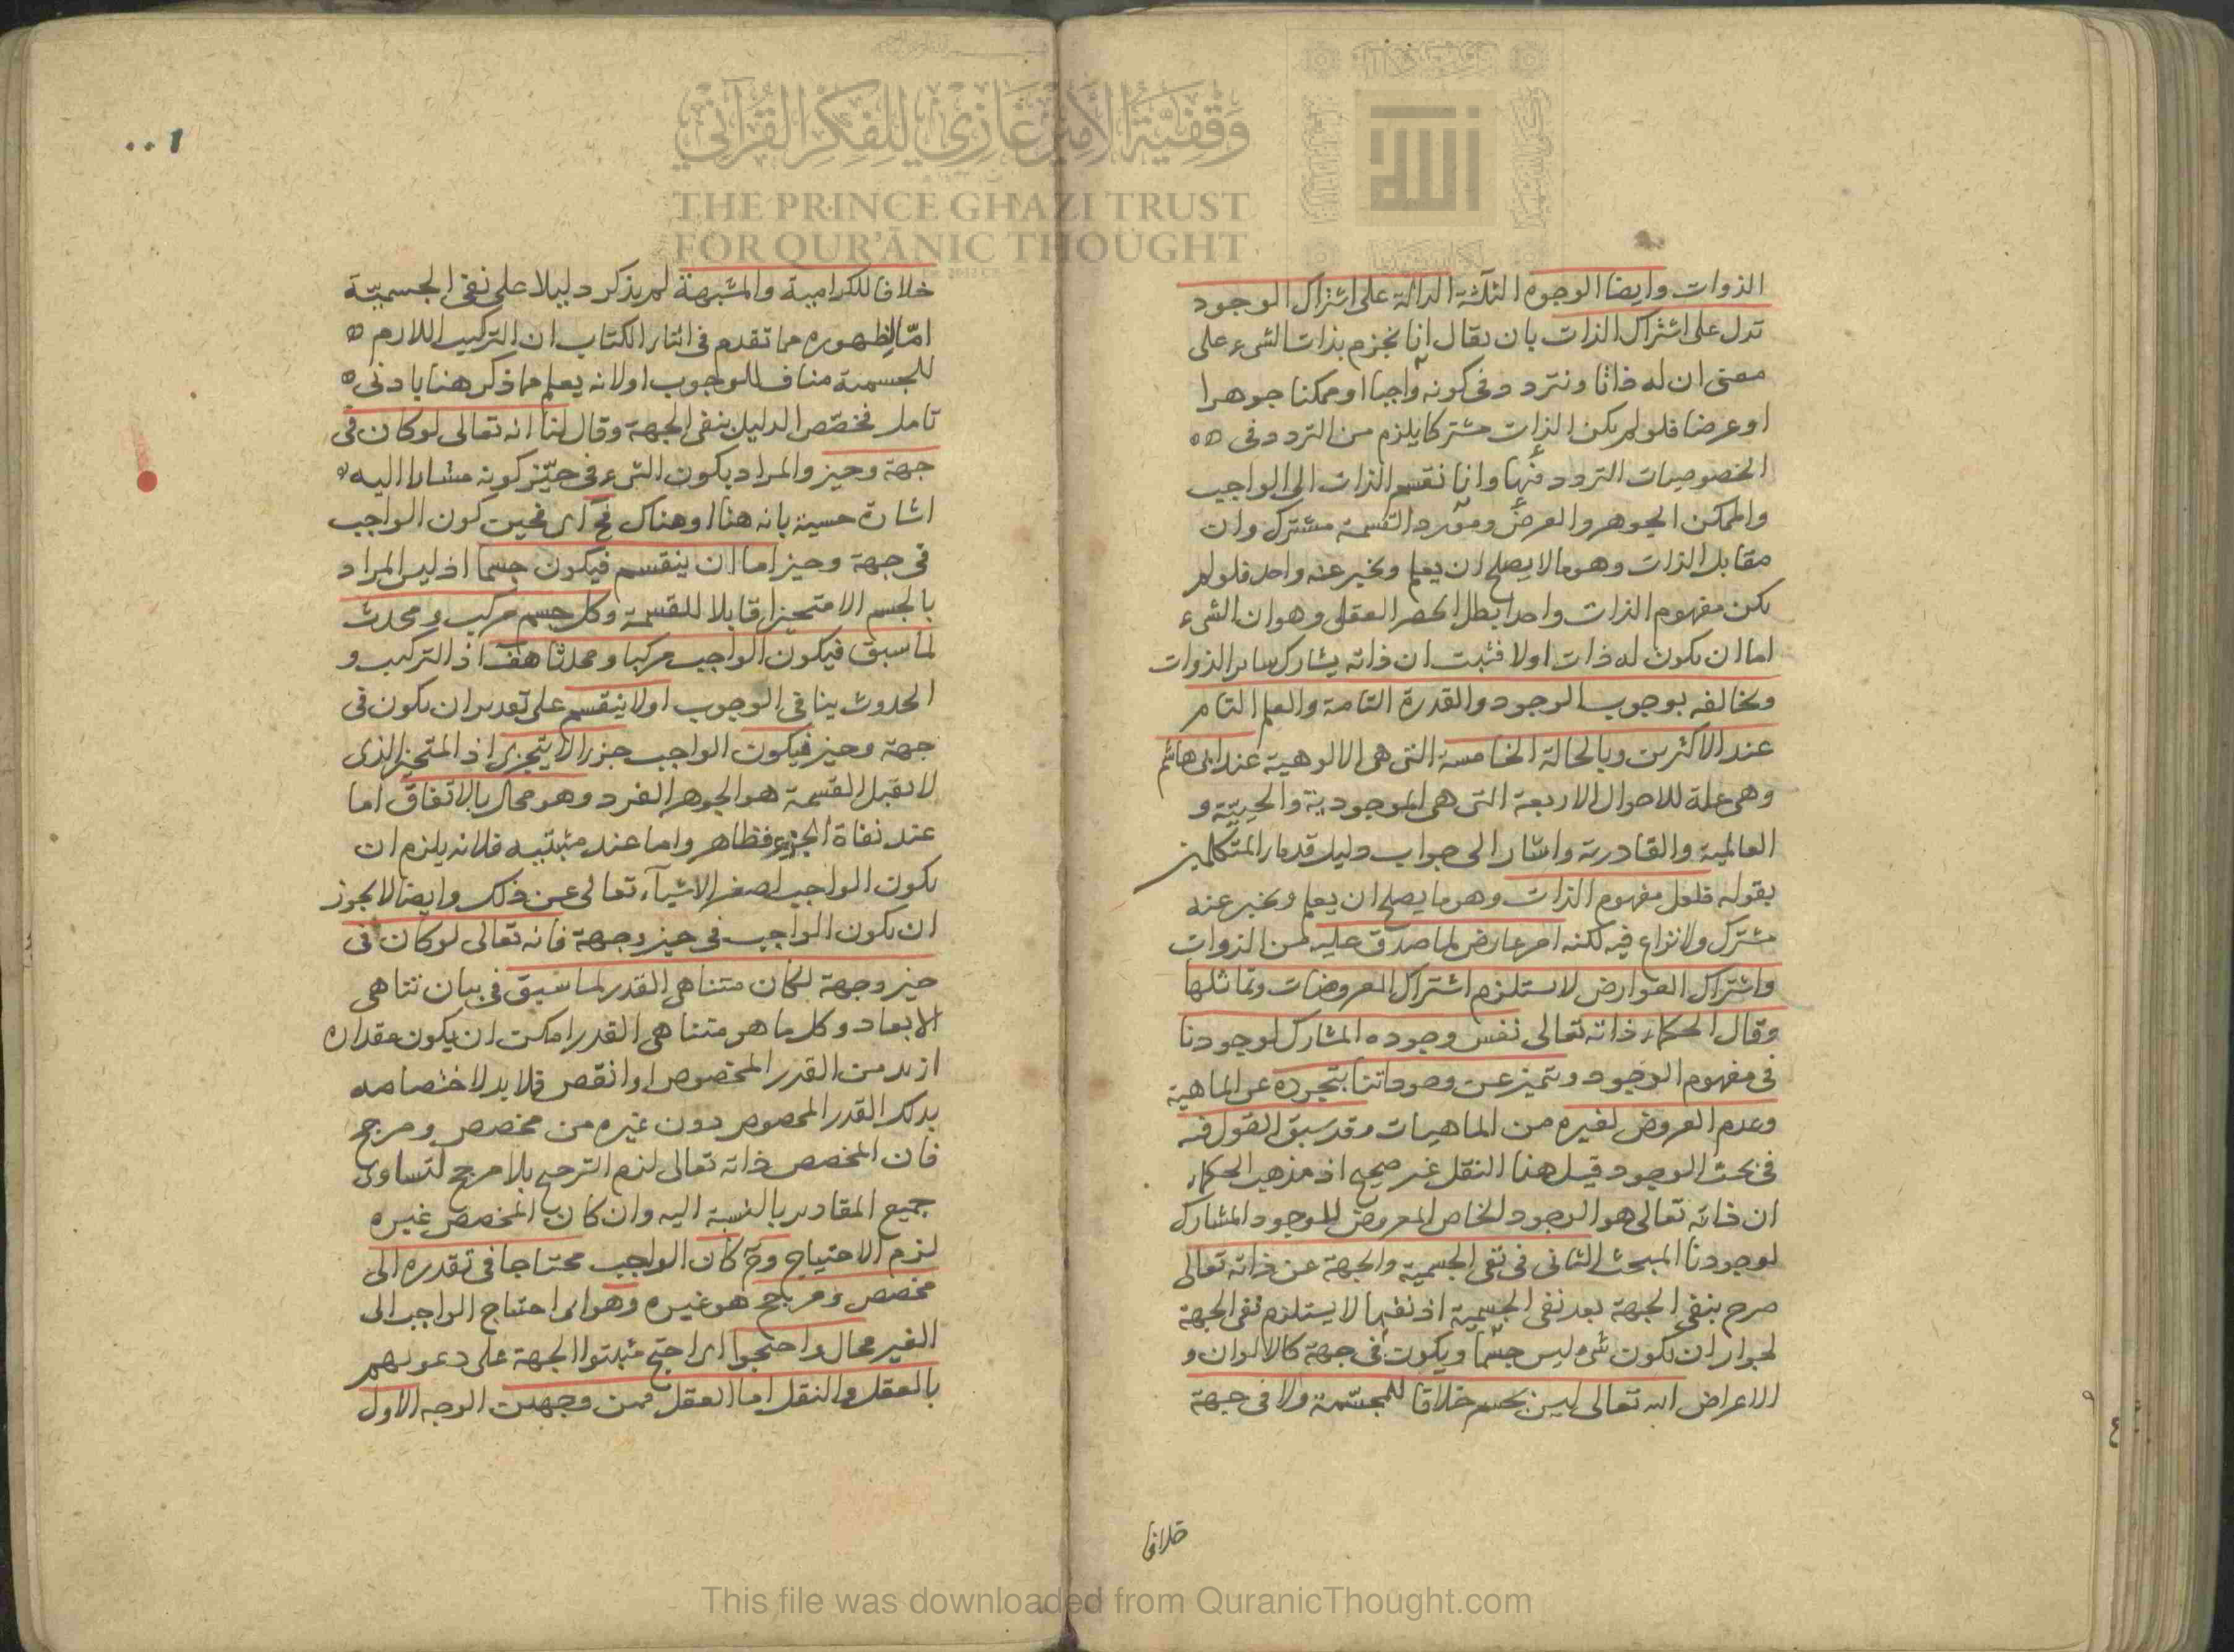 الذوات وايضا الوجوه الثلثة الدالة على اشتراك الوجود
تدل على اشتراك الذات بان يقال انا نجزم بذات الشيء على
معنى ان له ذاتا ونتردد في كونه واجبا او ممكنا جوهرا
او عرضا فلو لم يكن الذات مشتركا يلزم من التردد في
الخصوصيات التردد فيها وانا نقسم الذات الى الواجب
والممكن الجوهر والعرض ومورد القسمة مشترك وان
مقابل الذات وهو ما لا يصلح ان يعلم ويخبر عنه واحد فلو لم
يكن مفهوم الذات واحدا بطل الحصر العقلي وهو ان الشيء
اما ان يكون له ذات اولا فثبت ان ذاته يشارك ساير الذوات
ويخالفه بوجوب الوجود والقدرة التامة والعلم التام
عند الاكثرين وبالحالة الخامسة التي هي الالوهية عند ابي هاشم
وهي علة للاحوال الاربعة التي هي الموجودية والحيية و
العالمية والقادرية واشار الى جواب دليل قدماء المتكلمين
بقوله فلعل مفهوم الذات وهو ما يصلح ان يعلم ويخبر عنه
مشترك ولا نزاع فيه لكنه امر عارض لما صدق عليه من الذوات
واشتراك العوارض لا يستلزم اشتراك المعروضات وتماثلها
وقال الحكماء ذاته تعالى نفس وجوده المشارك لوجودنا
في مفهوم الوجود ويتميز عن وجوداتنا بتجرده عن الماهية
وعدم العروض لغيره من الماهيات وقد سبق القول فيه
في بحث الوجود قيل هذا النقل غير صحيح اذ مذهب الحكماء
ان ذاته تعالى هو الوجود الخاص المعروض للوجود المشارك
لوجودنا المبحث الثاني في نفي الجسمية والجهة عن ذاته تعالى
صرح بنفي الجهة بعد نفي الجسمية اذ نفيها لا يستلزم نفي الجهة
لجواز ان يكون شيء ليس جسما ويكون في جهة كالالوان و
الاعراض الله تعالى ليس بجسم خلافا للمجسمة ولا في جهة
خلافا
١٠٠
خلافا للكرامية والمشبهة لم يذكر دليلا على نفي الجسمية
اما لظهوره مما تقدم في اثناء الكتاب ان التركيب اللازم
للجسمية مناف للوجوب اولانه يعلم مما ذكر هنا بادنى
تامل فخصص الدليل بنفي الجهة وقال لنا انه تعالى لو كان في
جهة وحيز والمراد بكون الشيء في حيز كونه مشارا اليه
اشارة حسية بانه هنا او هناك فح اى فحين كون الواجب
في جهة وحيز اما ان ينقسم فيكون جسما اذ ليس المراد
بالجسم الا متحيزا قابلا للقسمة وكل جسم مركب ومحدث
لما سبق فيكون الواجب مركبا ومحدثا هف اذ التركيب و
الحدوث ينافي الوجوب اولا ينقسم على تقدير ان يكون في
جهة وحيز فيكون الواجب جزءا لا يتجزى اذ المتحيز الذى
لا يقبل القسمة هو الجوهر الفرد وهو محال بالاتفاق اما
عند نفاة الجزء فظاهر واما عند مثبتيه فلانه يلزم ان
يكون الواجب اصغر الاشياء تعالى عن ذلك وايضا لا يجوز
ان يكون الواجب في حيز وجهة فانه تعالى لو كان في
حيز وجهة لكان متناهي القدر لما سبق في بيان تناهي
الابعاد وكل ما هو متناهي القدر امكن ان يكون مقداره
ازيد من القدر المخصوص او انقص فلا بد لاختصاصه
بذلك القدر المخصوص دون غيره من مخصص ومرجح
فان المخصص ذاته تعالى لزم الترجيح بلا مرجح لتساوى
جميع المقادير بالنسبة اليه وان كان المخصص غيره
لزم الاحتياج وح كان الواجب محتاجا في تقدره الى
مخصص ومرجح هو غيره وهو اى احتياج الواجب الى
الغير محال واحتجوا اى احتج مثبتوا الجهة على دعويهم
بالعقل والنقل اما العقل فمن وجهين الوجه الاول
وقفية الأمير غازي للفكر القرآني
THE PRINCE GHAZI TRUST
FOR QUR'ĀNIC THOUGHT
الله
This file was downloaded from QuranicThought.com